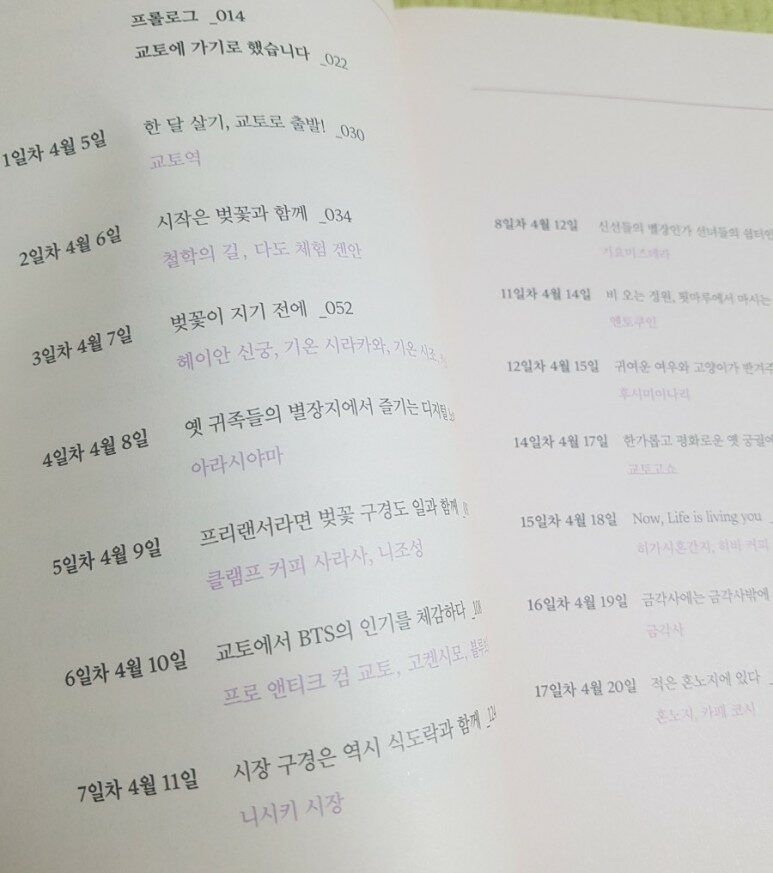 프롤로그 _014
교토에 가기로 했습니다 _022
1일차 4월 5일 한 달 살기, 교토로 출발! _030
교토역
2일차 4월 6일 시작은 벚꽃과 함께 _034
철학의 길, 다도 체험 켄안
3일차 4월 7일 벚꽃이 지기 전에 _052
헤이안 신궁, 기온 시라카와, 기온 시조,
4일차 4월 8일 옛 귀족들의 별장지에서 즐기는 디지털
아라시야마
5일차 4월 9일 프리랜서라면 벚꽃 구경도 일과 함께
클램프 커피 사라사, 니조성
6일차 4월 10일 교토에서 BTS의 인기를 체감하다 _108
프로 앤티크 컴 교토, 고켄시모,
7일차 4월 11일 시장 구경은 역시 식도락과 함께 _124
니시키 시장
8일차 4월 12일 신선들의 별장인가 선녀들의 쉼터인
기요미즈데라
11일차 4월 14일 비 오는 정원, 툇마루에서 마시는
엔토쿠인
12일차 4월 15일 귀여운 여우와 고양이가 반겨주
후시미이나리
14일차 4월 17일 한가롭고 평화로운 옛 궁궐에
교토고쇼
15일차 4월 18일 Now, Life is living you
히가시혼간지, 히비 커피
16일차 4월 19일 금각사에는 금각사밖에
금각사
17일차 4월 20일 적은 혼노지에 있다
혼노지, 카페 코시